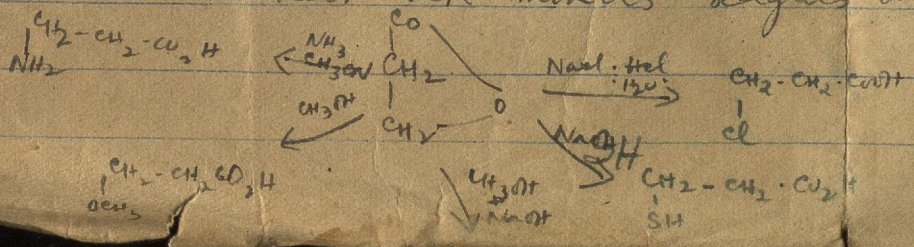 CH2 - CH2 - CO2H
NH2
NH3
CH3CN
CO
CH2
CH2
O
NaCl : HCl
: H2O :
CH2 - CH2 - COOH
Cl
CH3OH
CH2 - CH2 CO2H
OCH3
CH3OH
+
NaOH
CH2 - CH2 . CO2H
SH